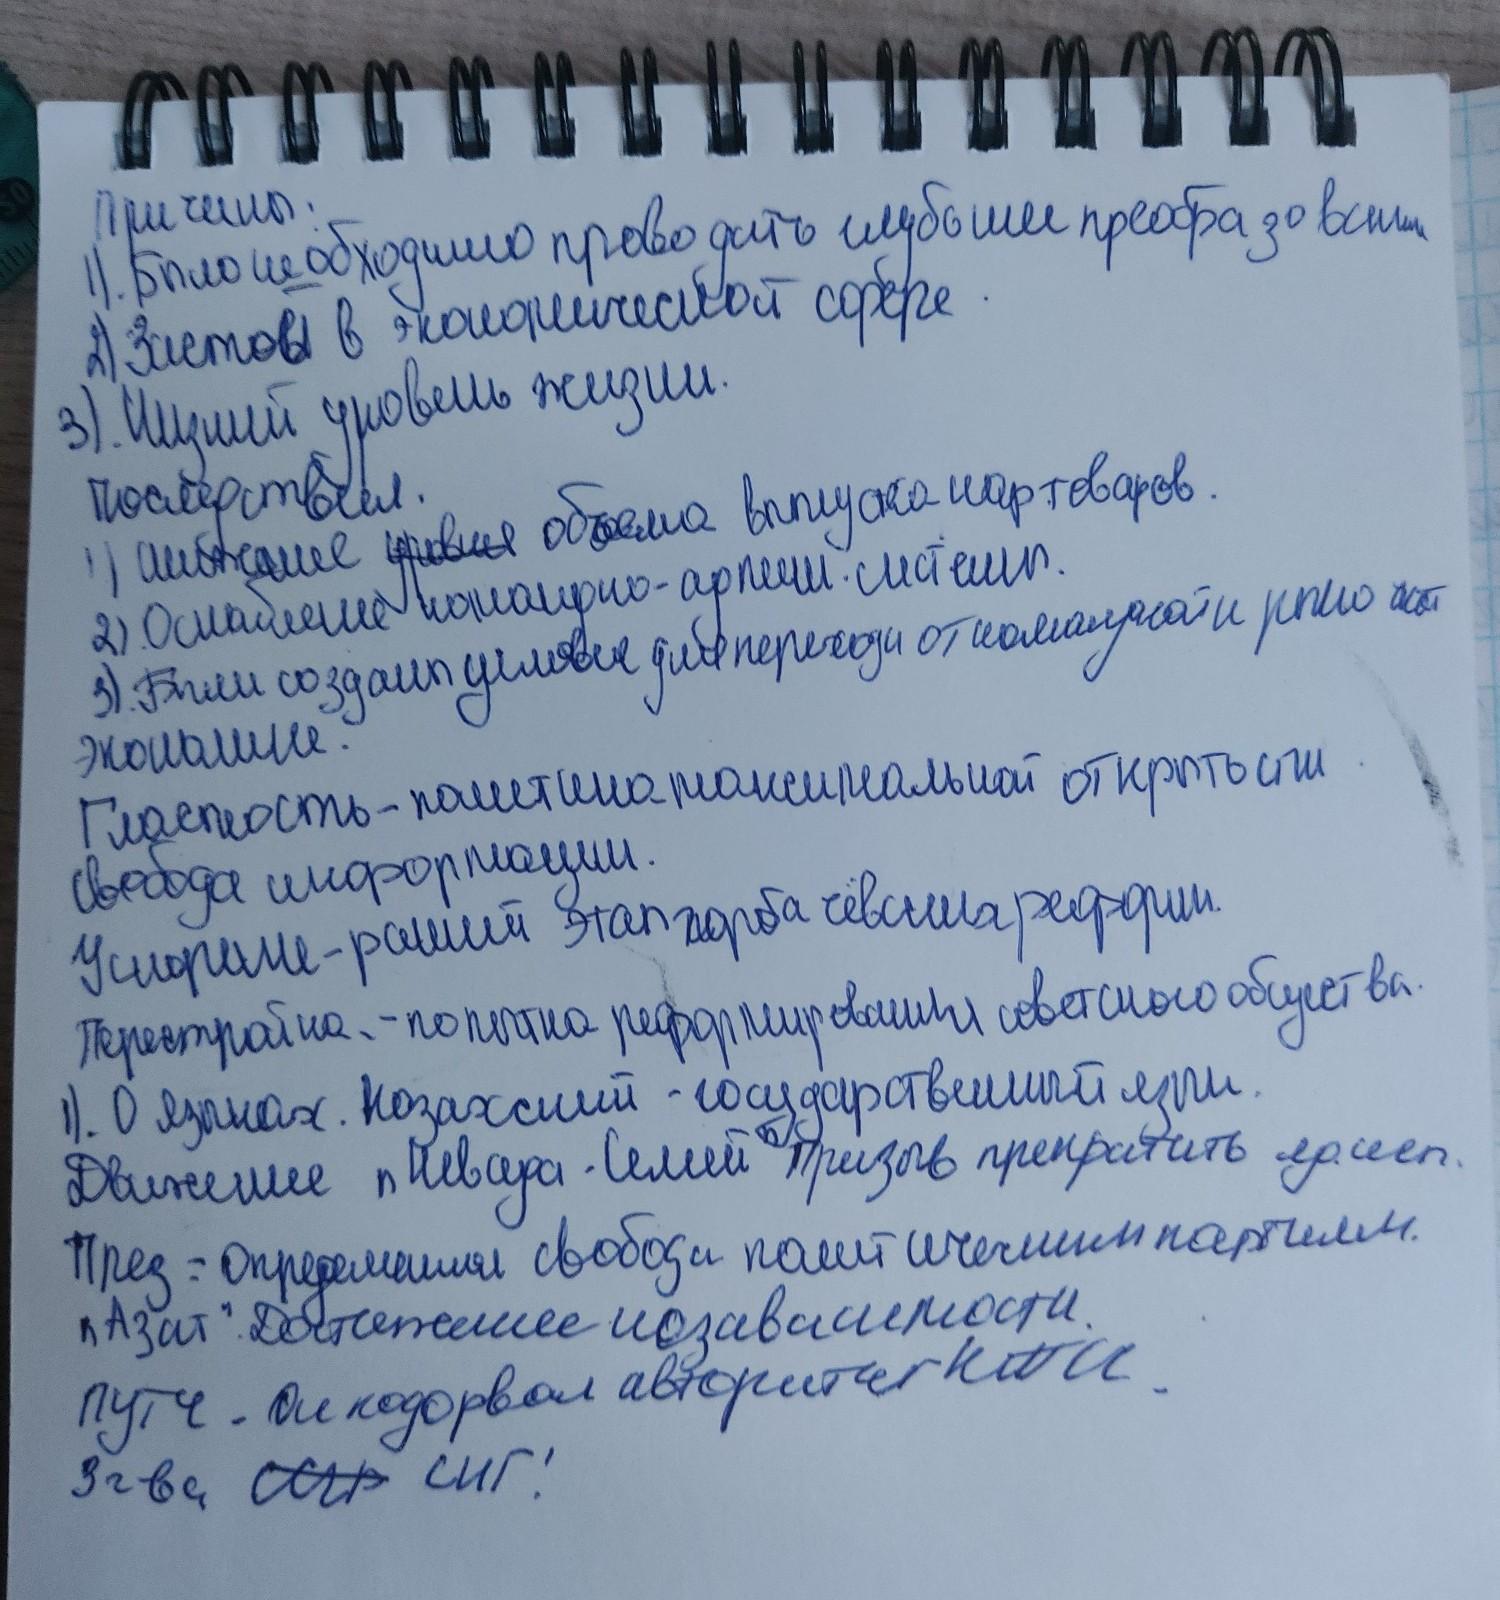 Причины:
1). Было необходимо проводить глубокие преобразования
2) Застой в экономической сфере.
3). Низкий уровень жизни.
Последствия.
1) снижение объема выпуска нар товаров.
2) Ослабление командно-админ. системы.
3). Были созданы условия для перехода от командной к рыночной
экономике.
Гласность - политика максимальной открытости
свобода информации.
Ускорение - ранний этап горбачёвских реформ.
Перестройка - попытка реформирования советского общества.
1). О языках. Казахский - государственный язык.
Движение "Невада-Семей" Призыв прекратить яд. исп.
През = Определения свободы политическим партиям.
"Азат". Достижение независимости.
ПУТЧ - Он подорвал авторитет КПСС.
3 г-ва СНГ!